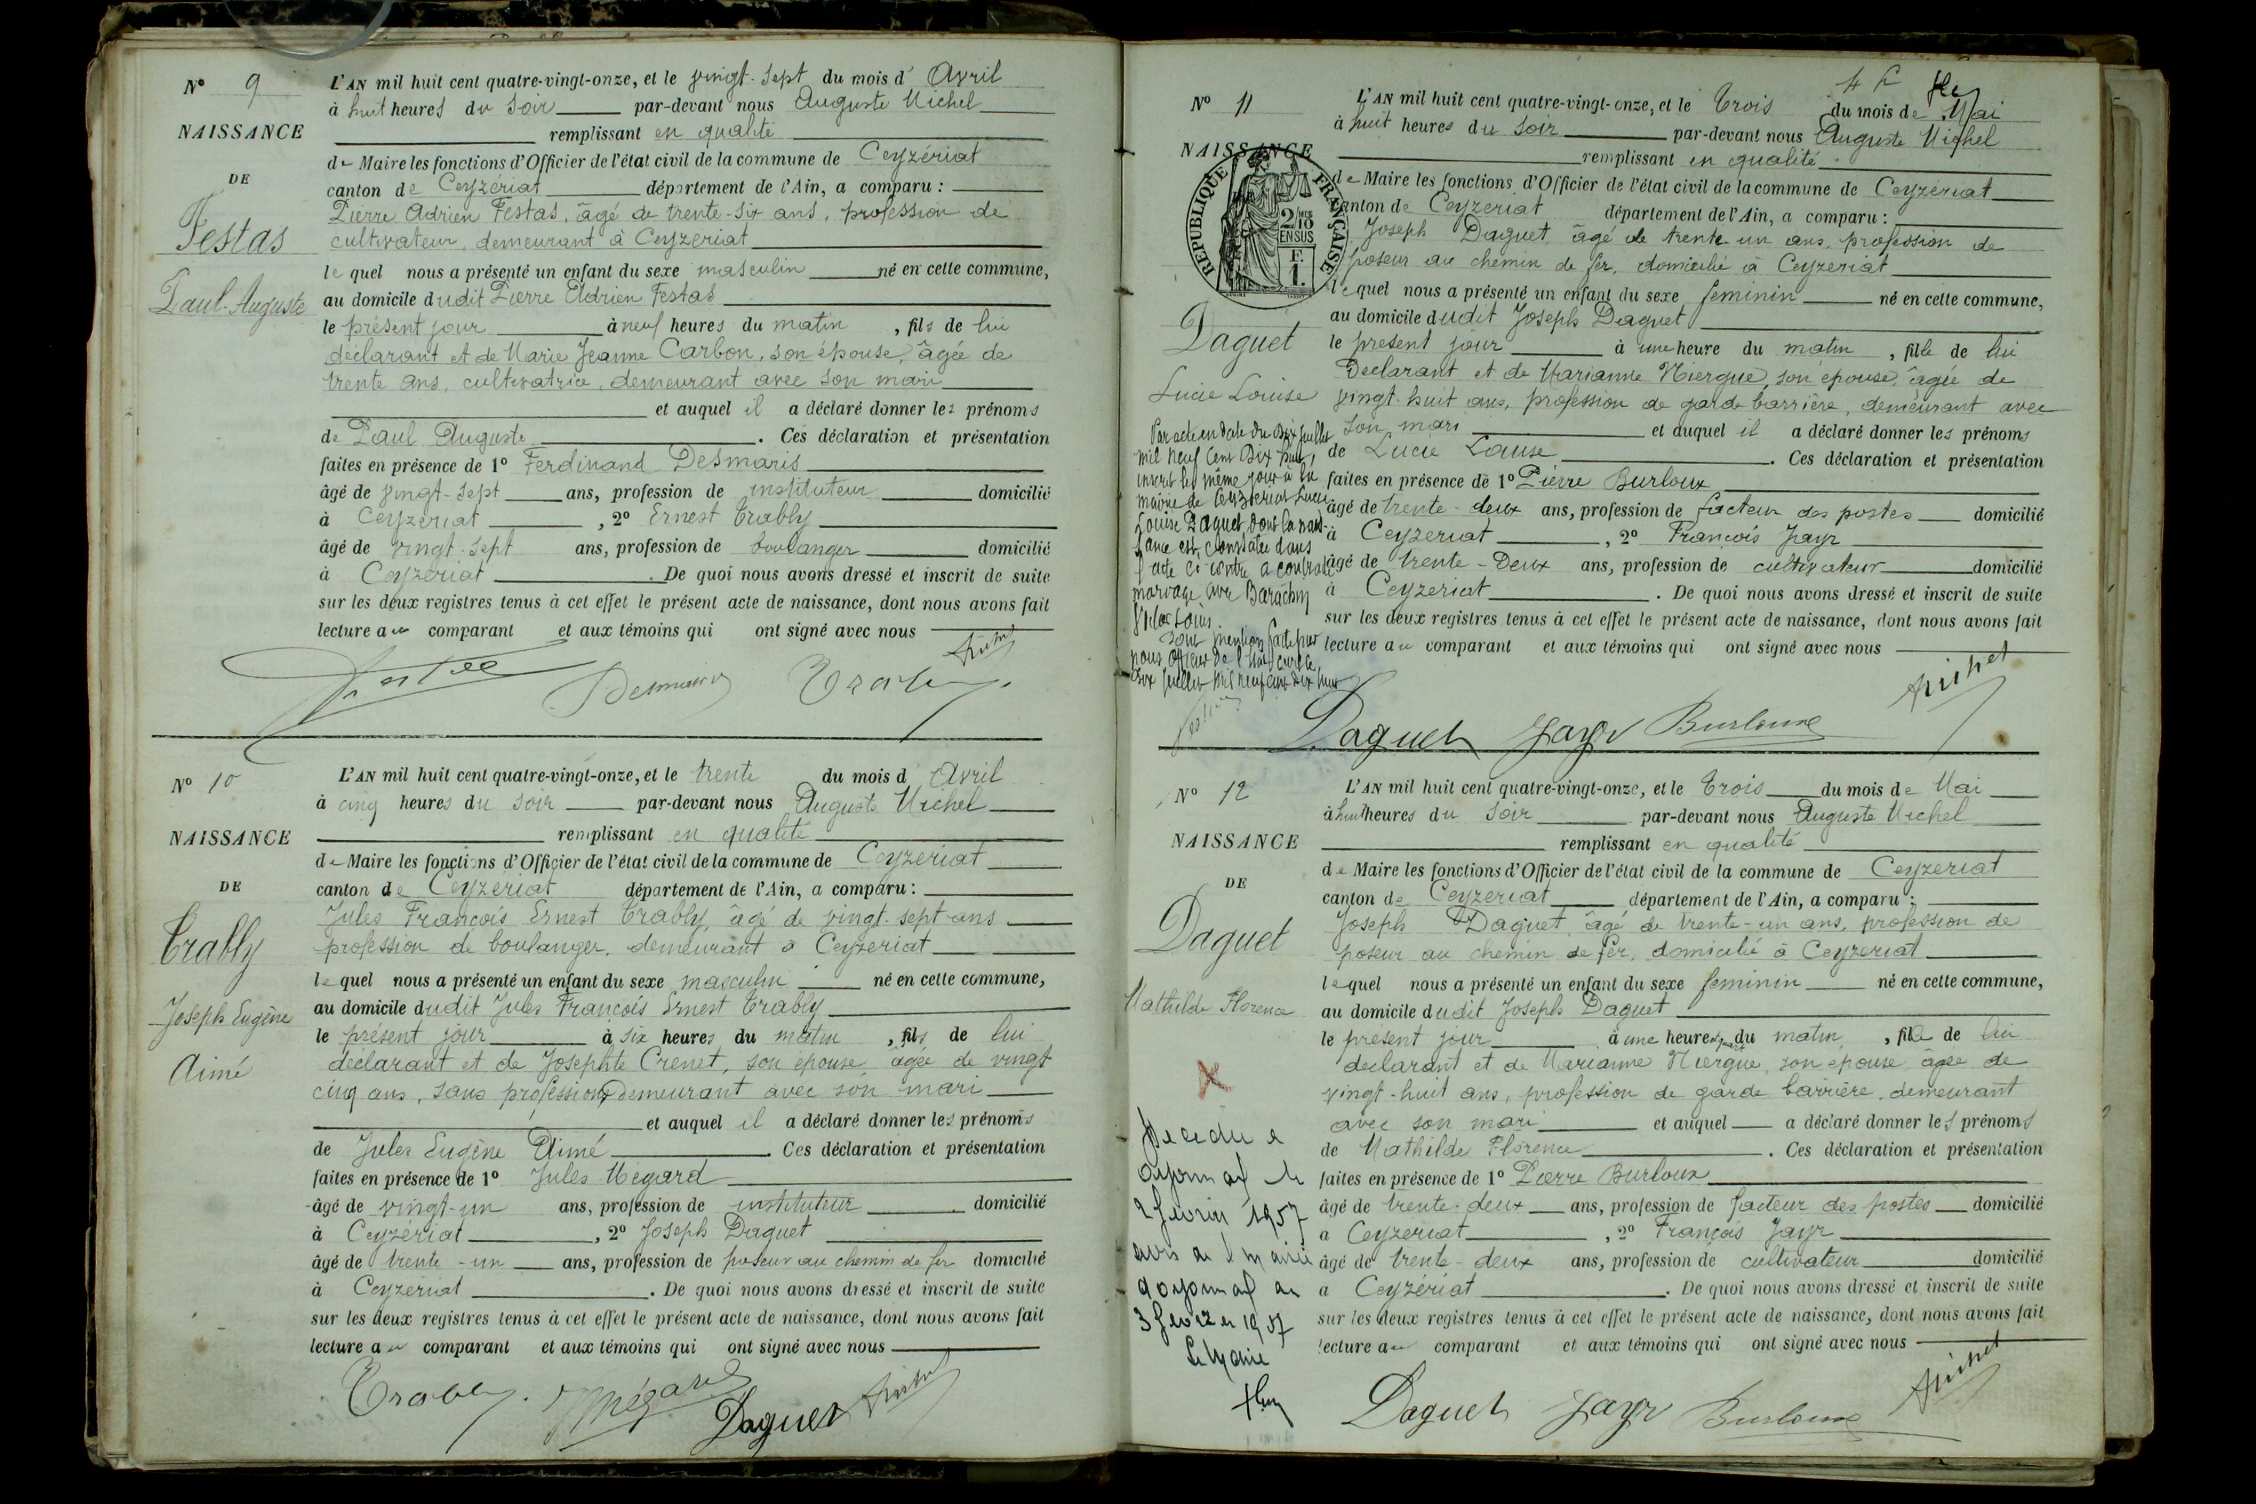 N° 9
NAISSANCE
DE
Festas
Paul-Auguste
L'AN mil huit cent quatre-vingt-onze, et le vingt-sept du mois d'Avril
à huit heures du soir par-devant nous Auguste Michel
remplissant en qualité
de Maire les fonctions d'Officier de l'état civil de la commune de Ceyzériat
canton de Ceyzériat département de l'Ain, a comparu :
Pierre Adrien Festas, âgé de trente-six ans, profession de
cultivateur, demeurant à Ceyzeriat
lequel nous a présenté un enfant du sexe masculin né en cette commune,
au domicile dudit Pierre Adrien Festas
le présent jour à neuf heures du matin, fils de lui
déclarant et de Marie Jeanne Carbon, son épouse, âgée de
trente ans, cultivatrice, demeurant avec son mari
et auquel il a déclaré donner les prénoms
de Paul Auguste. Ces déclaration et présentation
faites en présence de 1° Ferdinand Desmaris
âgé de vingt-sept ans, profession de instituteur domicilié
à Ceyzeriat, 2° Ernest Trably
âgé de vingt-sept ans, profession de boulanger domicilié
à Ceyzériat. De quoi nous avons dressé et inscrit de suite
sur les deux registres tenus à cet effet le présent acte de naissance, dont nous avons fait
lecture au comparant et aux témoins qui ont signé avec nous
Trably
N° 10
NAISSANCE
DE
Trably
Joseph Eugène
Aimé
L'AN mil huit cent quatre-vingt-onze, et le trente du mois d'Avril
à cinq heures du soir par-devant nous Auguste Michel
remplissant en qualité
de Maire les fonctions d'Officier de l'état civil de la commune de Ceyzeriat
canton de Ceyzériat département de l'Ain, a comparu :
Jules François Ernest Trably, âgé de vingt-sept ans
profession de boulanger, demeurant à Ceyzeriat
lequel nous a présenté un enfant du sexe masculin né en cette commune,
au domicile dudit Jules François Ernest Trably
le présent jour à six heures du matin, fils de lui
déclarant et de Josephte Crenet, son épouse âgée de vingt
cinq ans, sans profession, demeurant avec son mari
et auquel il a déclaré donner les prénoms
de Jules Eugène Aimé. Ces déclaration et présentation
faites en présence de 1° Jules Mégard
âgé de vingt-un ans, profession de instituteur domicilié
à Ceyzériat, 2° Joseph Daguet
âgé de trente-un ans, profession de poseur au chemin de fer domicilié
à Ceyzériat. De quoi nous avons dressé et inscrit de suite
sur les deux registres tenus à cet effet le présent acte de naissance, dont nous avons fait
lecture au comparant et aux témoins qui ont signé avec nous
Trably Mégard Daguet
N° 11
NAISSANCE
RÉPUBLIQUE FRANÇAISE
2/10 EN SUS
F. 1.
Daguet
Lucie Louise
L'AN mil huit cent quatre-vingt-onze, et le trois du mois de Mai
à huit heures du soir par-devant nous Auguste Michel
remplissant en qualité
de Maire les fonctions d'Officier de l'état civil de la commune de Ceyzeriat
canton de Ceyzeriat département de l'Ain, a comparu :
Joseph Daguet âgé de trente un ans, profession de
poseur au chemin de fer, domicilié à Ceyzeriat
lequel nous a présenté un enfant du sexe feminin né en cette commune,
au domicile dudit Joseph Daguet
le présent jour à une heure du matin, fille de lui
Declarant et de Marianne Niergue, son epouse, âgée de
vingt-huit ans, profession de garde barrière, demeurant avec
son mari et auquel il a déclaré donner les prénoms
de Lucie Louise. Ces déclaration et présentation
faites en présence de 1° Pierre Burloux
âgé de trente-deux ans, profession de facteur des postes domicilié
à Ceyzeriat, 2° François Jayr
âgé de trente-Deux ans, profession de cultivateur domicilié
à Ceyzeriat. De quoi nous avons dressé et inscrit de suite
sur les deux registres tenus à cet effet le présent acte de naissance, dont nous avons fait
lecture au comparant et aux témoins qui ont signé avec nous
Par acte en date du Dix Juillet
mil neuf cent Dix huit,
inscrit le même jour à la
mairie de Ceyzeriat Lucie
Louise Daguet dont la nais-
sance est constatée dans
l'acte ci-contre a contracté
mariage avec
Louis.
Dont mention faite par
nous officier de l'état civil le
Dix Juillet mil neuf cent dix huit
Daguet Jayr Burloux Michel
N° 12
NAISSANCE
DE
Daguet
Mathilde Florence
L'AN mil huit cent quatre-vingt-onze, et le trois du mois de Mai
à huit heures du soir par-devant nous Auguste Michel
remplissant en qualité
de Maire les fonctions d'Officier de l'état civil de la commune de Ceyzeriat
canton de Ceyzeriat département de l'Ain, a comparu :
Joseph Daguet, âgé de trente-un ans, profession de
poseur au chemin de fer, domicilié à Ceyzeriat
lequel nous a présenté un enfant du sexe feminin né en cette commune,
au domicile dudit Joseph Daguet
le présent jour à une heure du matin, fille de lui
declarant et de Marianne Niergue, son epouse âgée de
vingt-huit ans, profession de garde barrière, demeurant
avec son mari et auquel a déclaré donner les prénoms
de Mathilde Florence. Ces déclaration et présentation
faites en présence de 1° Pierre Burloux
âgé de trente-deux ans, profession de facteur des postes domicilié
a Ceyzeriat, 2° François Jayr
âgé de trente-deux ans, profession de cultivateur domicilié
a Ceyzériat. De quoi nous avons dressé et inscrit de suite
sur les deux registres tenus à cet effet le présent acte de naissance, dont nous avons fait
lecture au comparant et aux témoins qui ont signé avec nous
Decedee a
oyonnax le
2 fevrier 1957
avis de la mairie
d'oyonnax du
3 fevrier 1957
Le Maire
Daguet Jayr Burloux Michel